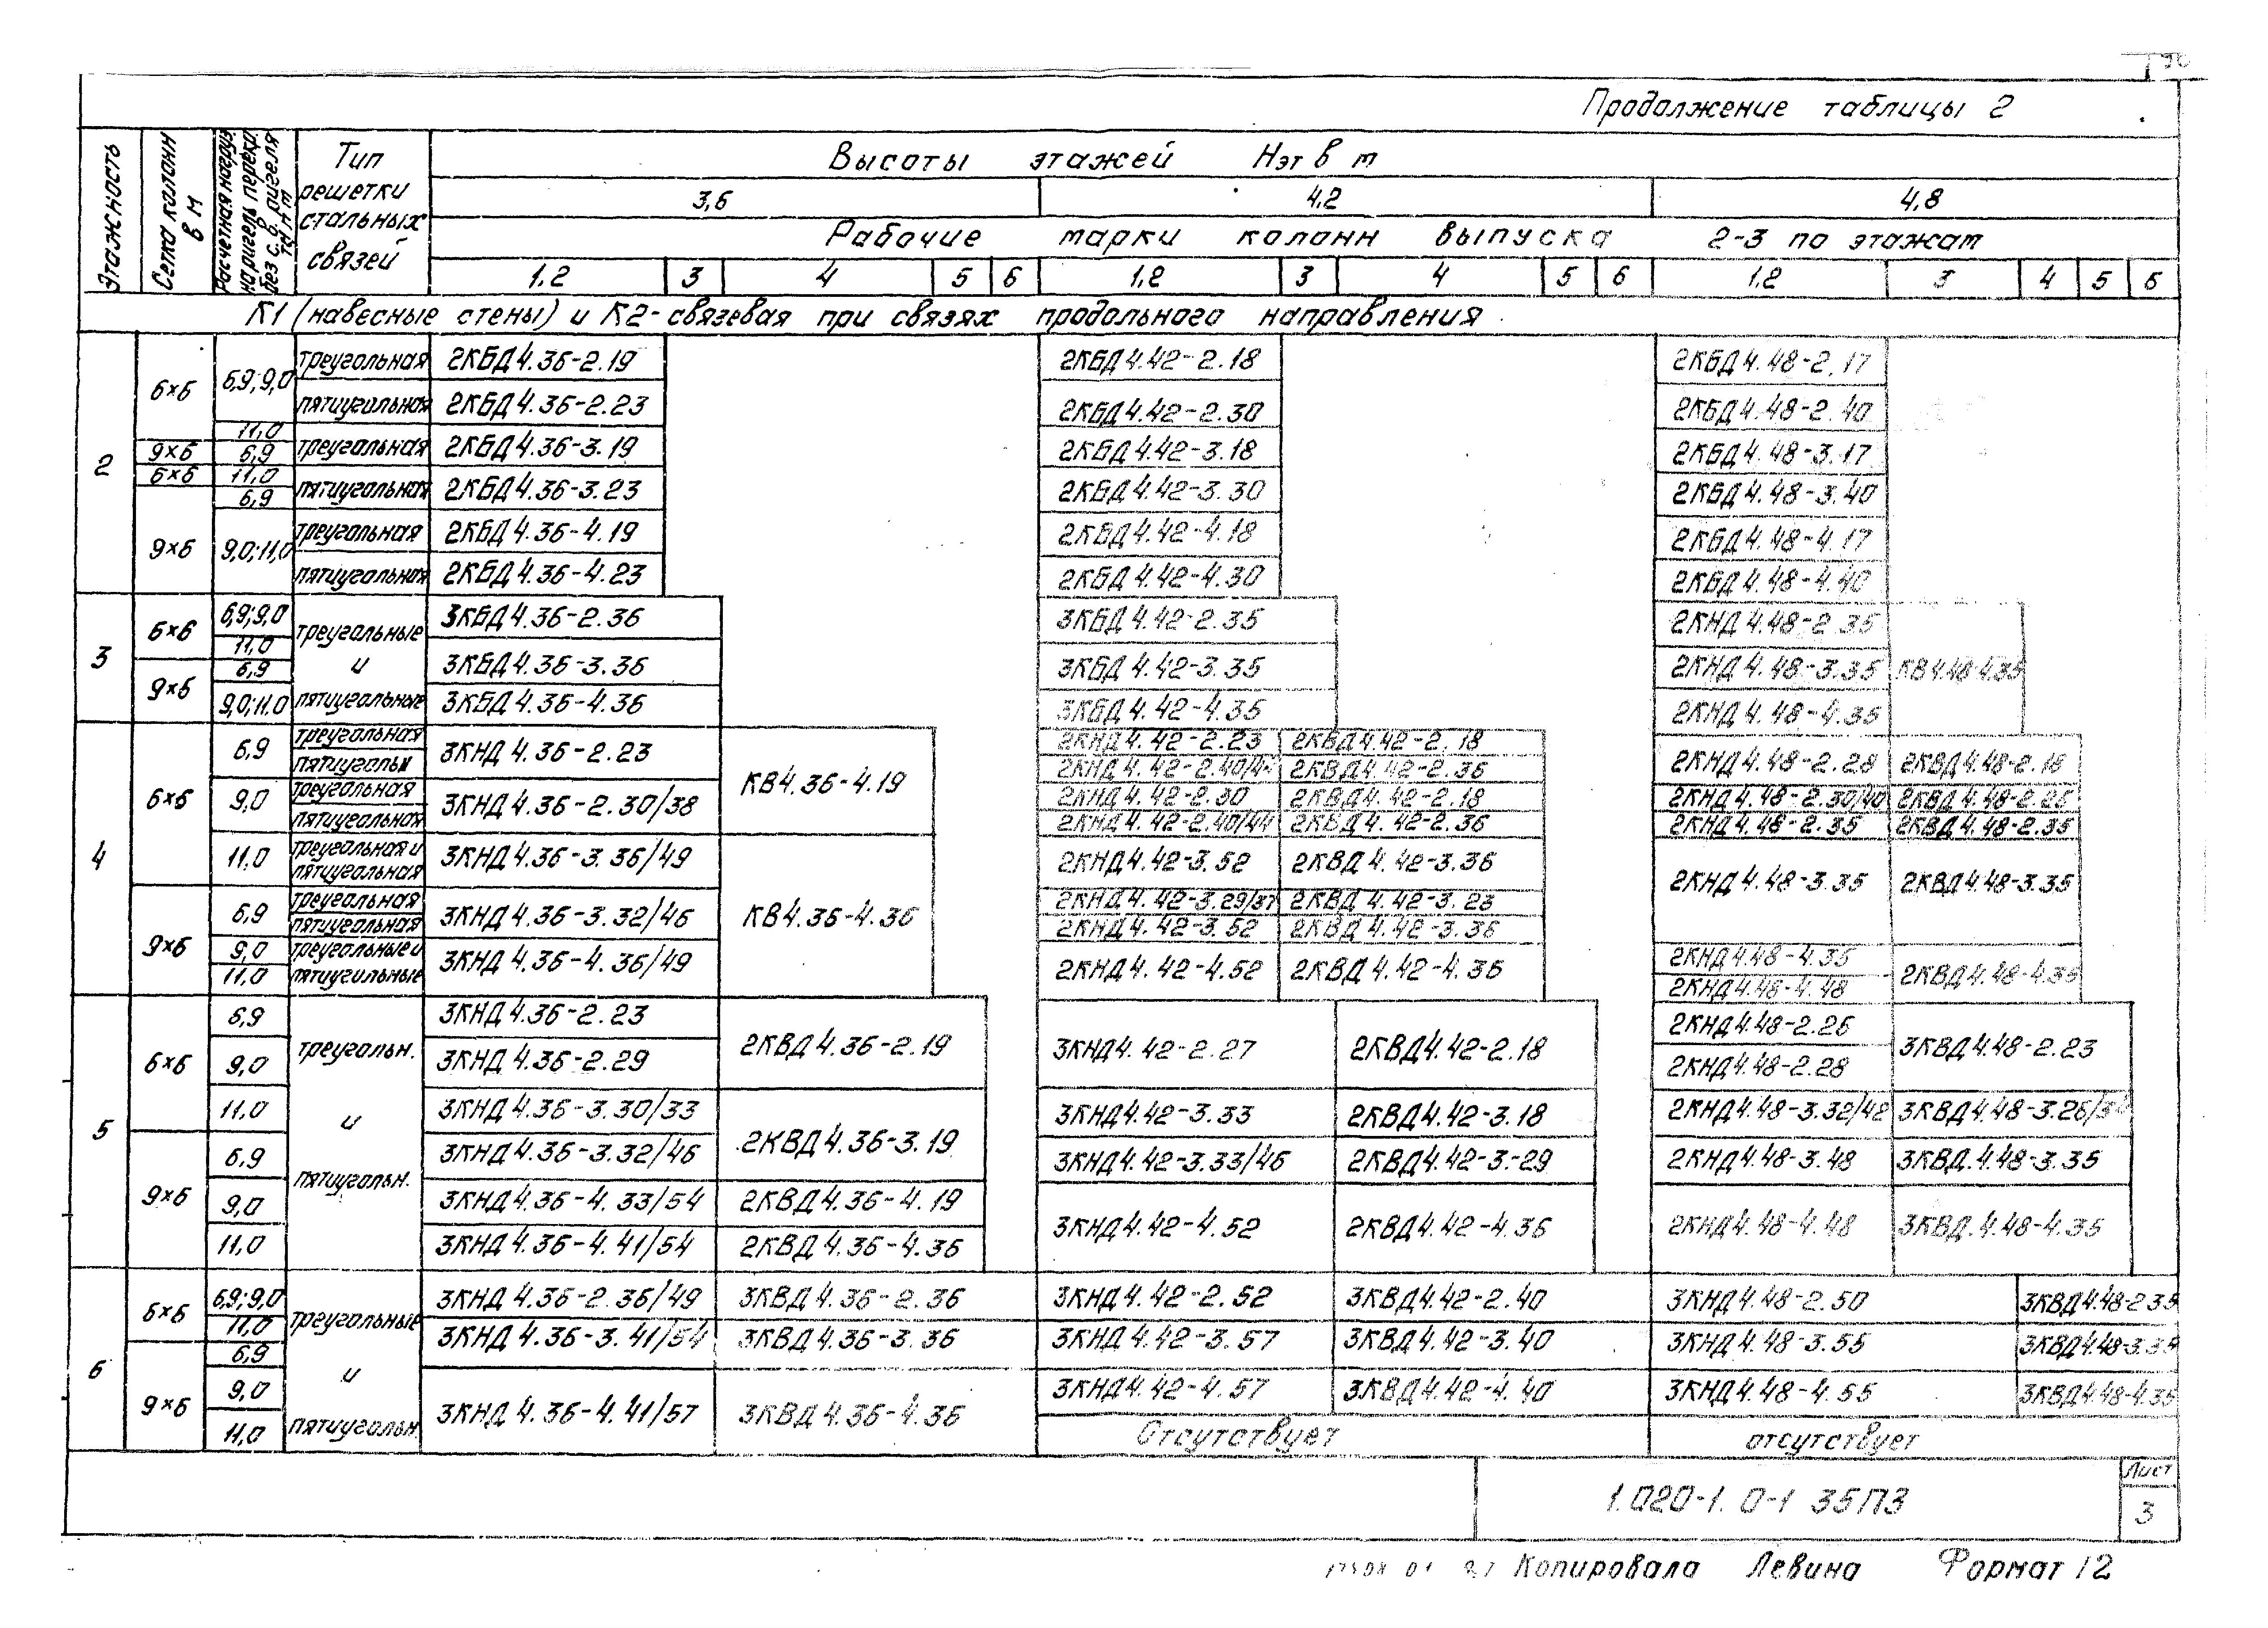 Продолжение таблицы 2
Этажность
Сетка колонн в м
Расчетная нагруз. на ригель перекр. без с.в. ригеля
Тип решетки стальных связей
Высоты этажей Нэт в м
3,6 4,2 4,8
Рабочие марки колонн выпуска 2-3 по этажам
1,2 3 4 5 6 1,2 3 4 5 6 1,2 3 4 5 6
К1 (навесные стены) и К2-связевая при связях продольного направления
2 6×6 6,9;9,0 треугольная 2КБД4.36-2.19 2КБД4.42-2.18 2КБД4.48-2.17
пятиугольная 2КБД4.36-2.23 2КБД4.42-2.30 2КБД4.48-2.40
11,0
9×6 6,9 треугольная 2КБД4.36-3.19 2КБД4.42-3.18 2КБД4.48-3.17
6×6 11,0
6,9 пятиугольная 2КБД4.36-3.23 2КБД4.42-3.30 2КБД4.48-3.40
9×6 9,0;11,0 треугольная 2КБД4.36-4.19 2КБД4.42-4.18 2КБД4.48-4.17
пятиугольная 2КБД4.36-4.23 2КБД4.42-4.30 2КБД4.48-4.40
3 6×6 6,9;9,0 треугольные 3КБД4.36-2.36 3КБД4.42-2.35 2КНД4.48-2.35
11,0
9×6 6,9 и 3КБД4.36-3.36 3КБД4.42-3.35 2КНД4.48-3.35 КВ4.48-4.35
9,0;11,0 пятиугольные 3КБД4.36-4.36 3КБД4.42-4.35 2КНД4.48-4.35
4 6×6 6,9 треугольная 3КНД4.36-2.23 КВ4.36-4.19 2КНД4.42-2.23 2КВД4.42-2.18 2КНД4.48-2.28 2КВД4.48-2.18
пятиугольн 2КНД4.42-2.40/44 2КВД4.42-2.36
9,0 треугольная 3КНД4.36-2.30/38 2КНД4.42-2.30 2КВД4.42-2.18 2КНД4.48-2.30/40 2КВД4.48-2.26
пятиугольная 2КНД4.42-2.40/44 2КВД4.42-2.36 2КНД4.48-2.35 2КВД4.48-2.35
11,0 треугольная и пятиугольная 3КНД4.36-3.36/49 КВ4.36-4.36 2КНД4.42-3.52 2КВД4.42-3.36 2КНД4.48-3.35 2КВД4.48-3.35
9×6 6,9 треугольная 3КНД4.36-3.32/46 2КНД4.42-3.29/37 2КВД4.42-3.23
пятиугольная 2КНД4.42-3.52 2КВД4.42-3.36
9,0 треугольные и 3КНД4.36-4.36/49 2КНД4.42-4.52 2КВД4.42-4.36 2КНД4.48-4.35 2КВД4.48-4.35
11,0 пятиугольные 2КНД4.48-4.48
5 6×6 6,9 треугольн. 3КНД4.36-2.23 2КВД4.36-2.19 3КНД4.42-2.27 2КВД4.42-2.18 2КНД4.48-2.26 3КВД4.48-2.23
9,0 3КНД4.36-2.29 2КНД4.48-2.28
11,0 и 3КНД4.36-3.30/33 2КВД4.36-3.19 3КНД4.42-3.33 2КВД4.42-3.18 2КНД4.48-3.32/42 3КВД4.48-3.26/
9×6 6,9 пятиугольн. 3КНД4.36-3.32/46 3КНД4.42-3.33/46 2КВД4.42-3.-29 2КНД4.48-3.48 3КВД.4.48-3.35
9,0 3КНД4.36-4.33/54 2КВД4.36-4.19 3КНД4.42-4.52 2КВД4.42-4.36 2КНД4.48-4.48 3КВД.4.48-4.35
11,0 3КНД4.36-4.41/54 2КВД4.36-4.36
6 6×6 6,9;9,0 треугольные 3КНД4.36-2.36/49 3КВД4.36-2.36 3КНД4.42-2.52 3КВД4.42-2.40 3КНД4.48-2.50 3КВД4.48-2.35
11,0 3КНД4.36-3.41/54 3КВД4.36-3.36 3КНД4.42-3.57 3КВД4.42-3.40 3КНД4.48-3.55 3КВД4.48-3.35
9×6 6,9 и
9,0 3КНД4.36-4.41/57 3КВД4.36-4.36 3КНД4.42-4.57 3КВД4.42-4.40 3КНД4.48-4.55 3КВД4.48-4.35
11,0 пятиугольн. Отсутствует отсутствует
1.020-1. 0-1 35ПЗ
Лист
3
Копировала Левина Формат 12